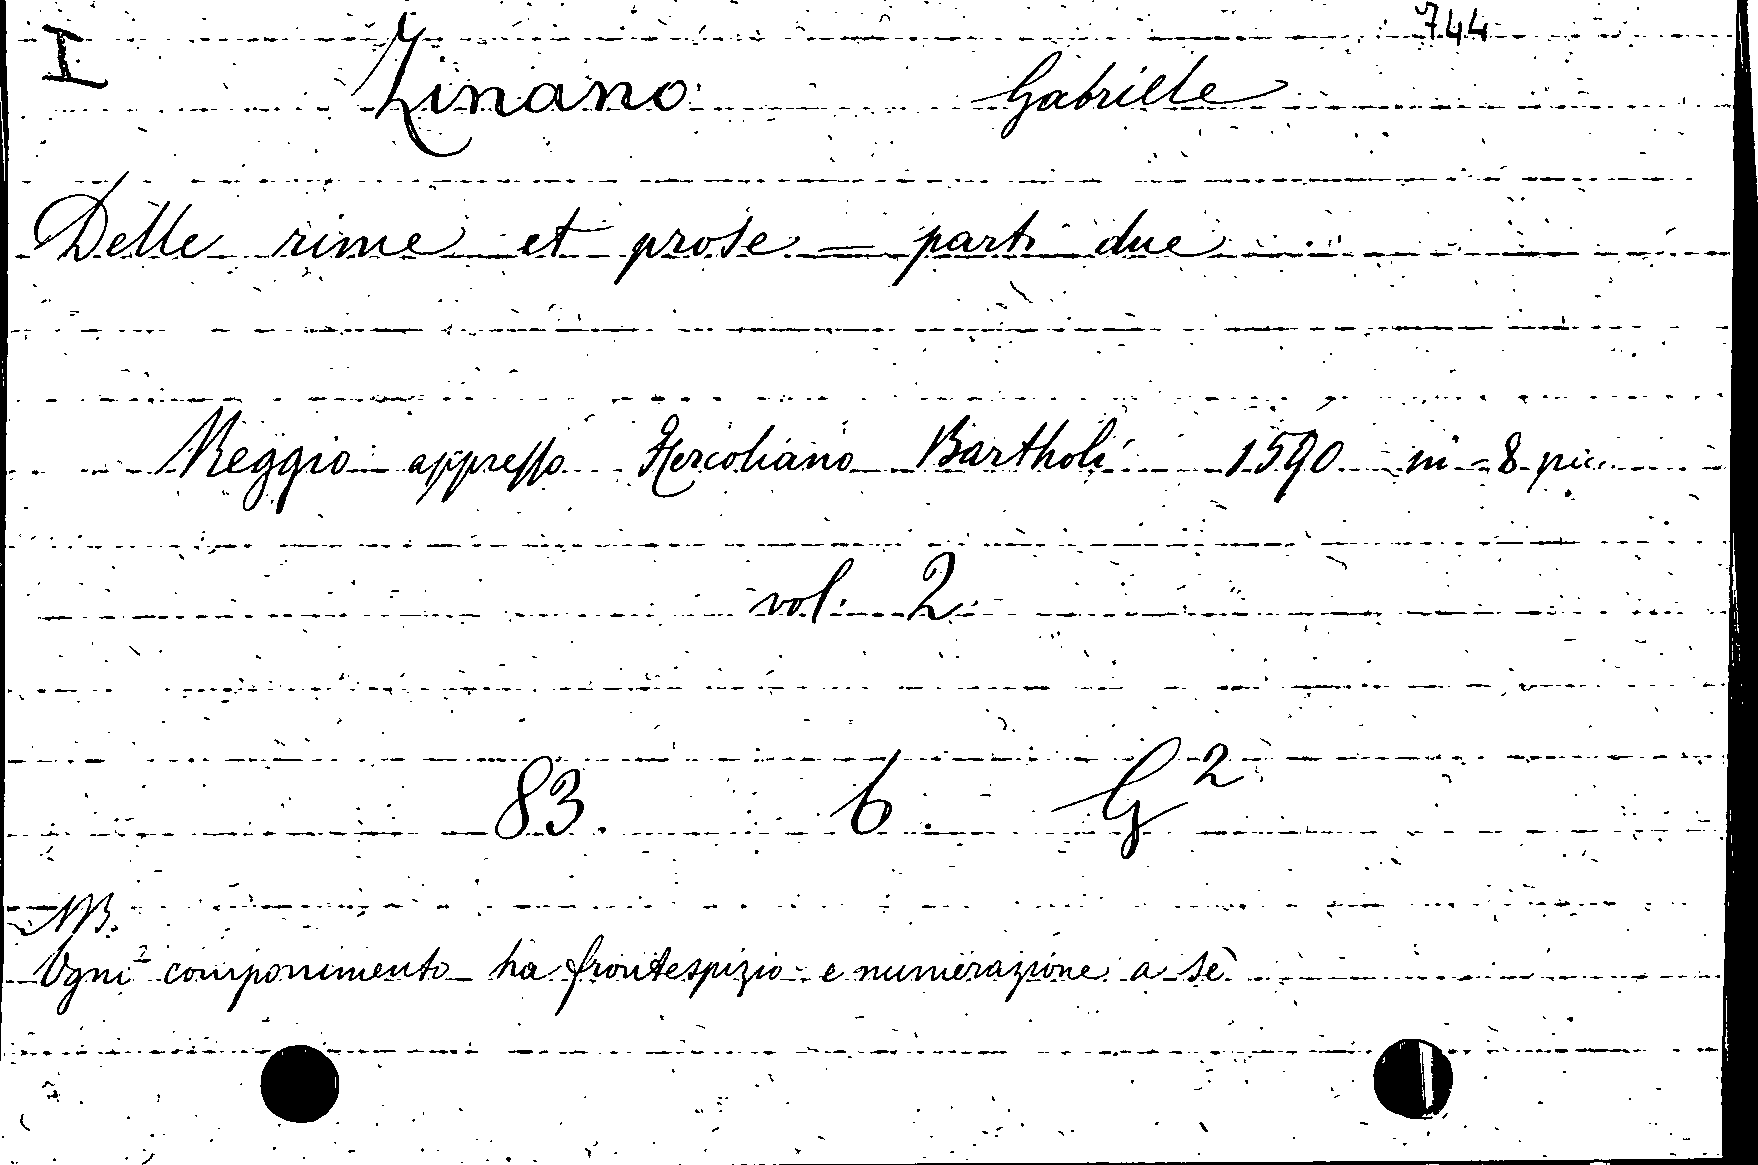 I 744
Zinano Gabriele
Delle rime et prose = parti due
Reggio appresso Hercoliano Bartholi 1590 in-8 pic.
vol. 2
83. 6. G²
NB.
Ogni componimento ha frontespizio e numerazione a sè